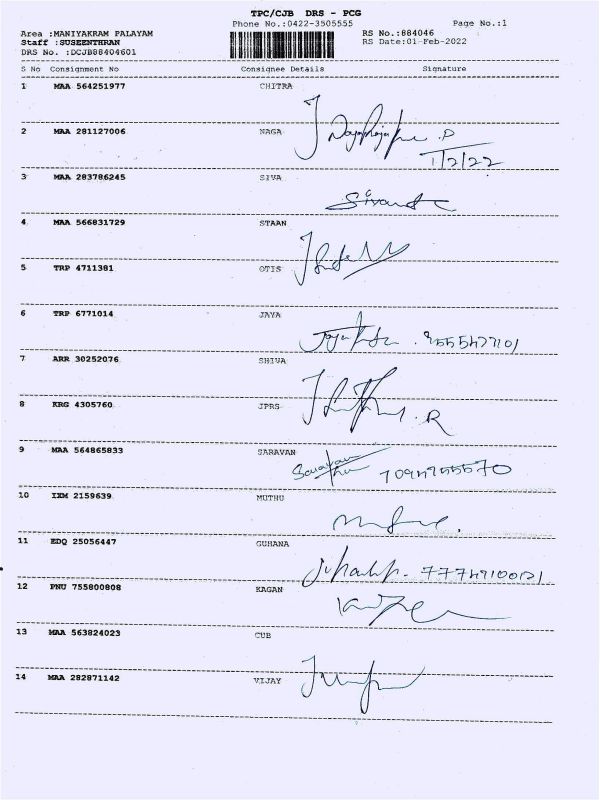 TPC/CJB DRS - PCG
Phone No.:0422-3505555 Page No.:1
Area :MANIYAKRAM PALAYAM RS No.:884046
Staff :SUSEENTHRAN RS Date:01-Feb-2022
DRS No. :DCJB88404601
S No Consignment No Consignee Details Signature
1 MAA 564251977 CHITRA
2 MAA 281127006 NAGA
P
1/2/22
3 MAA 283786245 SIVA
4 MAA 566831729 STAAN
5 TRP 4711381 OTIS
6 TRP 6771014 JAYA
7 ARR 30252076 SHIVA
8 KRG 4305760 JPRS
R
9 MAA 564865833 SARAVAN
10 IXM 2159639 MUTHU
11 EDQ 25056447 GUHANA
12 PNU 755800808 KAGAN
13 MAA 563824023 CUB
14 MAA 282871142 VIJAY